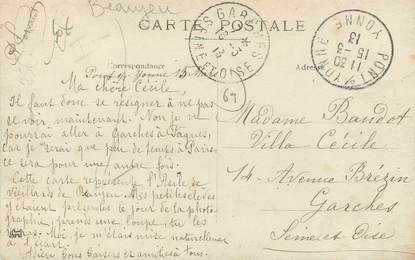 Beaujeu
CARTE POSTALE
Correspondance
Adresse
GARCHES
SEINE ET OISE
PONT S/ YONNE YONNE
11 30
15 - 3
13
67
Pont s/ Yonne 15 Mars
Ma chère Cécile,
Il faut donc se résigner à ne pas
se voir maintenant. Non je ne
pourrai aller à Garches à Pâques,
car je serai que peu de temps à Paris.
Ce sera pour une autre fois.
Cette carte représente l'Asile de
vieillards de Beaujeu. Mes petites élèves
y étaient présentes le jour de la photo-
graphie, prends une loupe, tu les
verras. Moi je m'étais mise naturellement
à l'écart.
Adieu bons baisers et amitiés à tous.
Madame Baudot
Villa Cécile
14 - Avenue Brézin
Garches
Seine et Oise